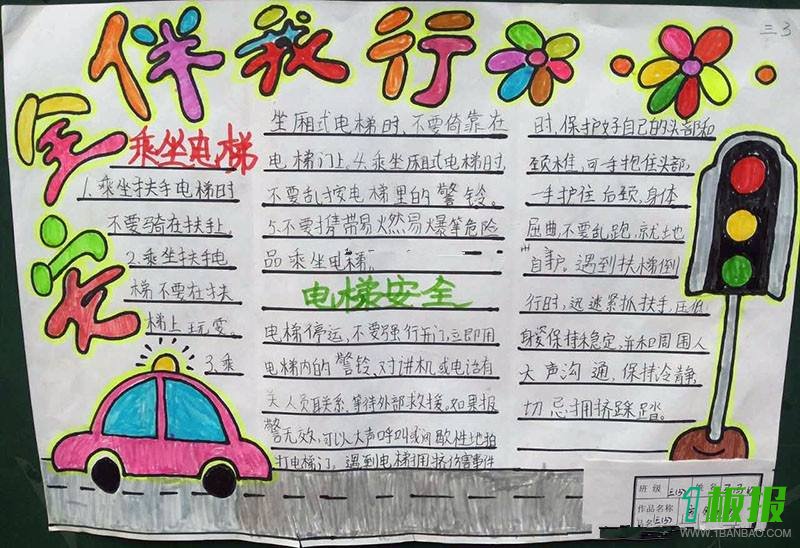 安全伴我行
三3
乘坐电梯
1.乘坐扶手电梯时
不要骑在扶手上.
2.乘坐扶手电
梯不要在扶
梯上玩耍.
3.乘
坐厢式电梯时,不要倚靠在
电梯门上.4.乘坐厢式电梯时,
不要乱按电梯里的警铃。
5.不要携带易燃易爆等危险
品乘坐电梯.
电梯安全
电梯停运,不要强行开门,立即用
电梯内的警铃、对讲机或电话有
关人员联系,等待外部救援。如果报
警无效,可以大声呼叫或间歇性地拍
打电梯门。遇到电梯拥挤伤害事件
时,保护好自己的头部和
颈椎,可手抱住头部,
一手护住后颈,身体
屈曲,不要乱跑,就地
自护。遇到扶梯倒
行时,迅速紧抓扶手,压低
身姿保持稳定,并和周围人
大声沟通,保持冷静
切忌拥挤踩踏。
班级 三(3) 姓名
作品名称
三(3)
1板报
WWW.1BANBAO.COM